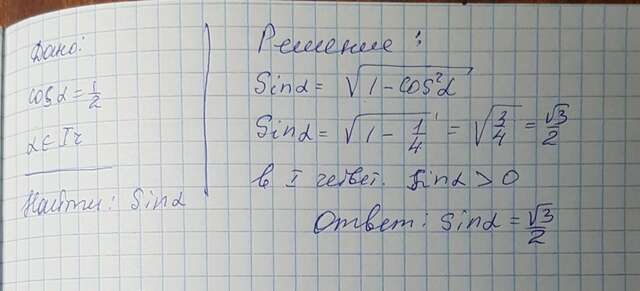 Дано:
cos α = 1/2
α ∈ I г
Найти: Sin α
Решение:
Sin α = √(1 - cos² α)
Sin α = √(1 - 1/4) = √(3/4) = √3/2
в I четвет. Sin α > 0
Ответ: Sin α = √3/2